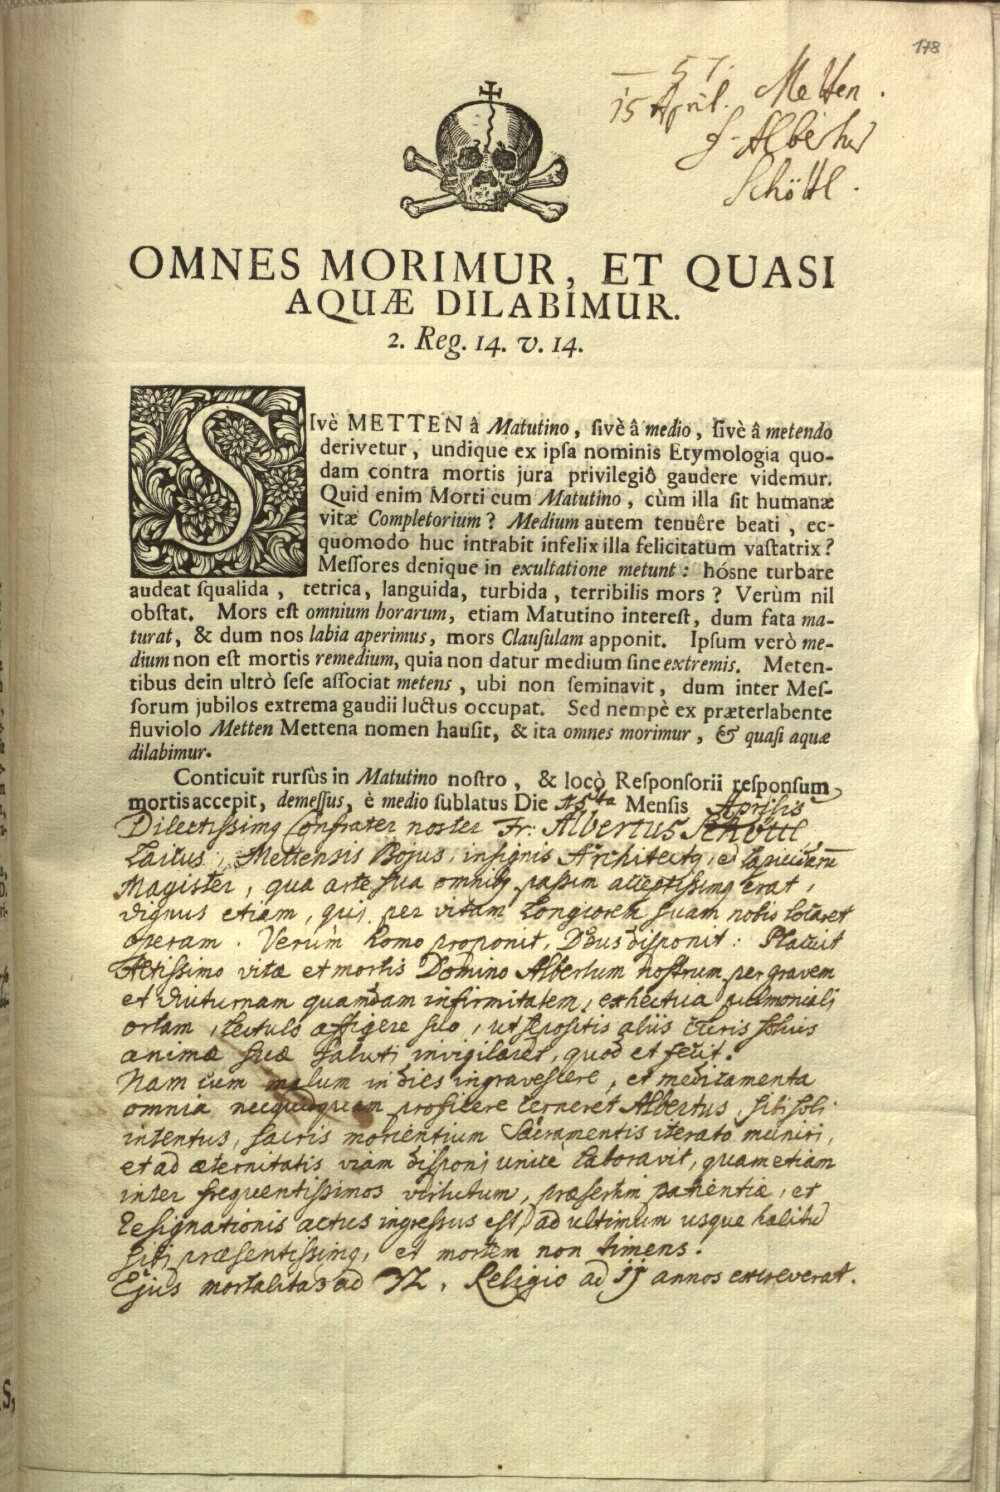 178
— 57.
15 April. Metten.
f. Albertus
Schöttl.
OMNES MORIMUR, ET QUASI
AQUÆ DILABIMUR.
2. Reg. 14. v. 14.
SIvè METTEN â Matutino, ſivè â medio, ſivè â metendo
derivetur, undique ex ipſa nominis Etymologia quo-
dam contra mortis jura privilegiô gaudere videmur.
Quid enim Morti cum Matutino, cùm illa ſit humanæ
vitæ Completorium? Medium autem tenuêre beati, ec-
quomodo huc intrabit infelix illa felicitatum vaſtatrix?
Meſſores denique in exultatione metunt: hósne turbare
audeat ſqualida, tetrica, languida, turbida, terribilis mors? Verùm nil
obſtat. Mors eſt omnium horarum, etiam Matutino intereſt, dum fata ma-
turat, & dum nos labia aperimus, mors Clauſulam apponit. Ipſum verò me-
dium non eſt mortis remedium, quia non datur medium ſine extremis. Meten-
tibus dein ultrò ſeſe aſſociat metens, ubi non ſeminavit, dum inter Meſ-
ſorum jubilos extrema gaudii luctus occupat. Sed nempè ex præterlabente
fluviolo Metten Mettena nomen hauſit, & ita omnes morimur, & quaſi aquæ
dilabimur.
Conticuit rurſùs in Matutino noſtro, & locò Reſponſorii reſponſum
mortis accepit, demeſſus, è medio ſublatus Die 15ta Menſis Aprilis
Dilectissimq Confrater noster Fr: Albertus Schöttl
Laicus, Mettensis Bojus, insignis Architectq, et lapicidarū
Magister, qua arte sua omnibq passim acceptissimq erat,
dignus etiam, qui per vitam longiorem suam nobis locaret
operam. Verùm homo proponit, Deus disponit: Placuit
Altissimo vitæ et mortis Domino Albertum nostrum per gravem
et diuturnam quamdam infirmitatem, ex hectica pulmoniali
ortam, lectulo affigere suo, ut sepositis aliis curis solius
animæ suæ saluti invigilaret, quod et fecit.
Nam cum malum in dies ingravescere, et medicamenta
omnia necquidquam proficere cerneret Albertus, sibi soli
intentus, sacris morientium Sacramentis iterato muniri,
et ad æternitatis viam disponi unicè laboravit, quam etiam
inter frequentissimos virtutum, præsertim patientiæ, et
resignationis actus ingressus est, ad ultimum usque halitū
sibi præsentissimq, et mortem non timens.
Ejus mortalitas ad 72, Religio ad annos excreverat.